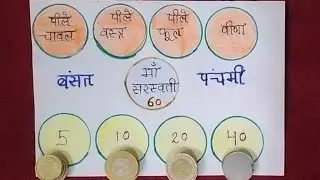 पीले
चावल
पीले
वस्त्र
पीले
फूल
वीणा
बसंत
माँ
सरस्वती
60
पंचमी
5
10
20
40